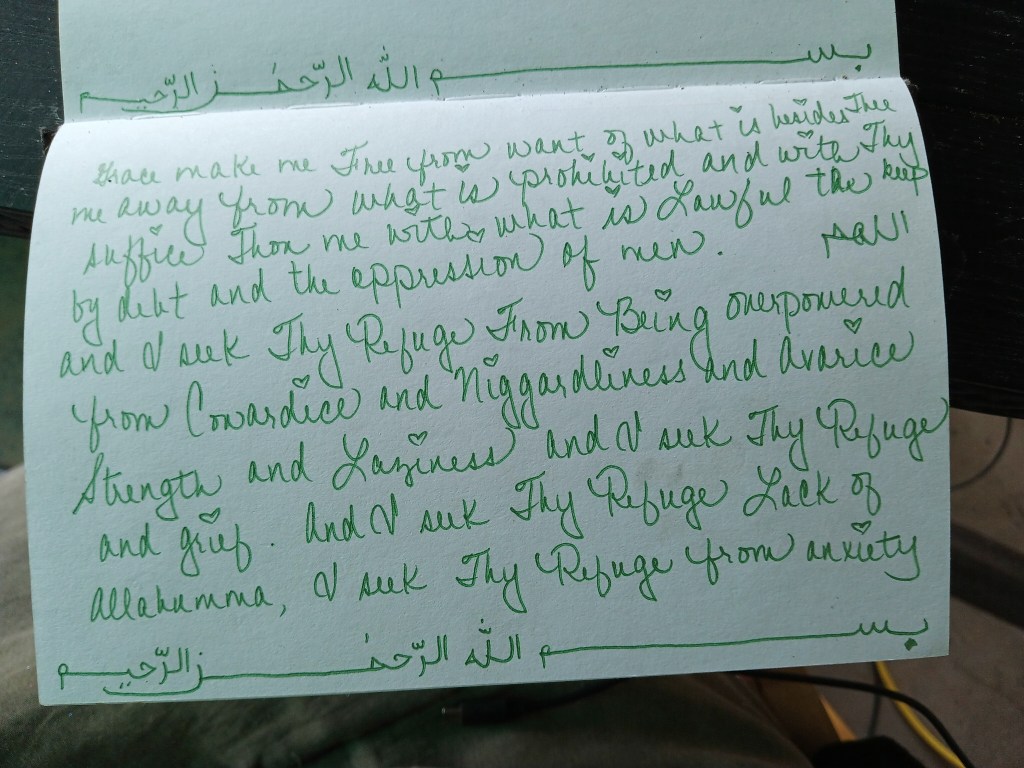 بسم الله الرّحمٰن الرّحيم
Allahumma, I seek Thy Refuge from anxiety
and grief. And I seek Thy Refuge Lack of
Strength and Laziness and I seek Thy Refuge
from Cowardice and Niggardliness and Avarice
and I seek Thy Refuge From Being overpowered
by debt and the oppression of men. اللهم
suffice Thou me with what is Lawful the keep
me away from what is prohibited and with Thy
Grace make me Free from want of what is besides Thee
بسم الله الرّحمٰن الرّحيم